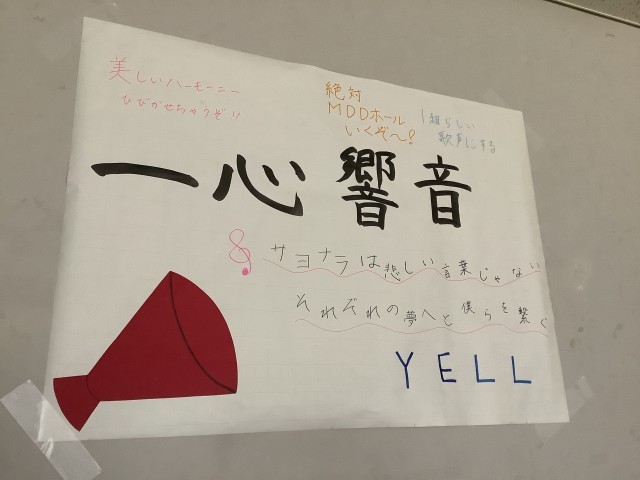 美しいハーモニー
ひびかせちゃうぞ!!
絶対
MDDホール
いくぞ〜!
1組らしい
歌声にする
一心響音
サヨナラは悲しい言葉じゃない
それぞれの夢へと僕らを繋ぐ
YELL